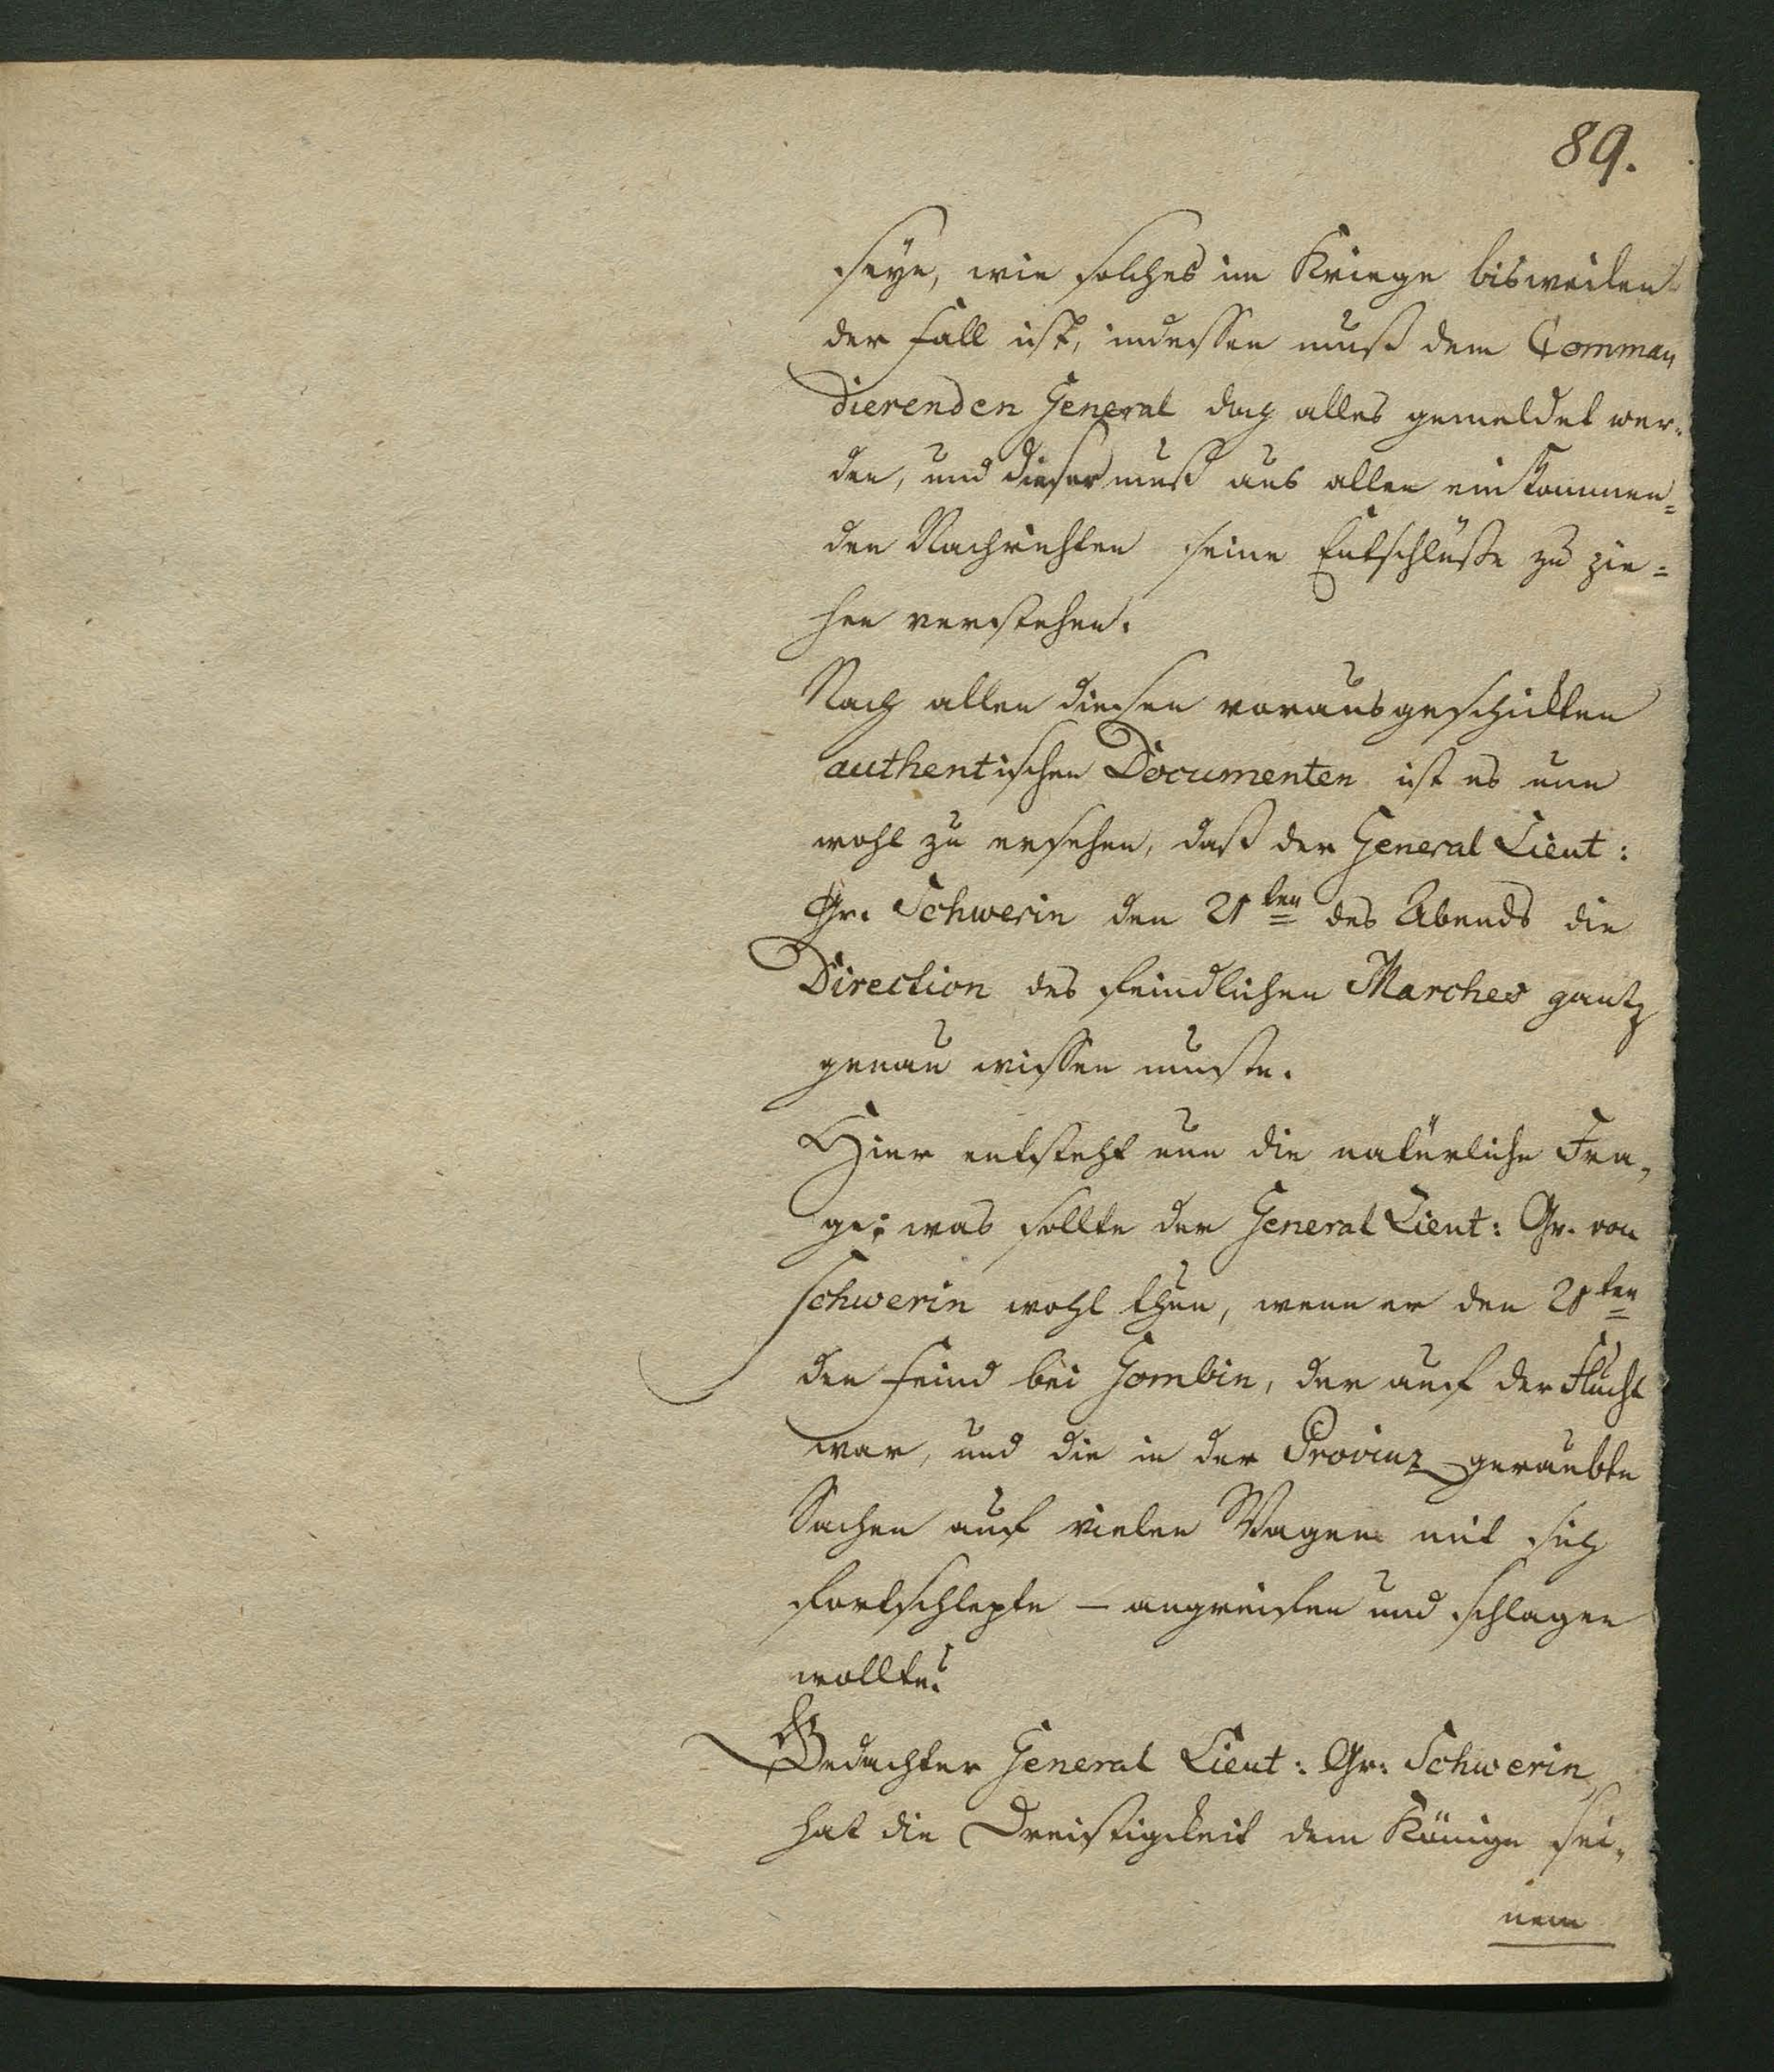 89.
seye, wie solches im Kriege bisweilen
der Fall ist, indessen muß dem Comman„
dierenden General doch alles gemeldet wer„
den, und dieser muß aus allen einkommen=
den Nachrichten seine Entschlüße zu zie=
hen verstehen.
Nach allen diesen vorausgeschickten
authentischen Documenten ist es nun
wohl zu ersehen, daß der General Lieut:
Gr. Schwerin den 21ten des Abends die
Direction des feindlichen Marches gantz
genau wissen muste.
Hier entsteht nun die natürliche Fra„
ge; was sollte der General Lieut: Gr. von
Schwerin wohl thun, wenn er den 21ten
den Feind bei Gombin, der auf der Flucht
war, und die in der Provinz geraubte
Sachen auf vielen Wagen mit sich
fortschlepte – angreifen und schlagen
wollte?
Gedachter General Lieut: Gr: Schwerin
hat die Dreistigkeit dem Könige sei„
nem